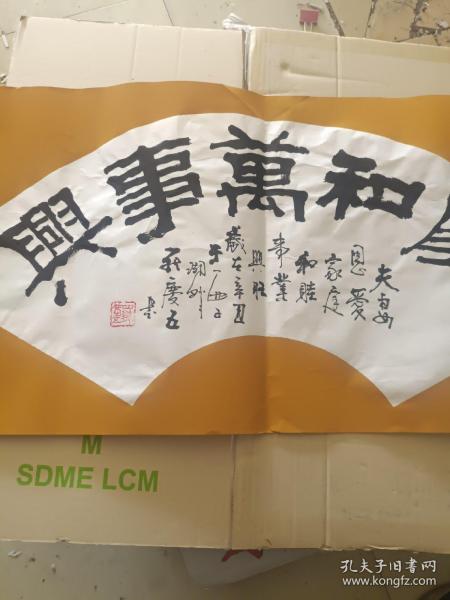 和萬事興
夫婦
恩愛
家庭
和睦
事業
興旺
歲在辛丑
慶五
書
M
SDME LCM
孔夫子旧书网
www.kongfz.com